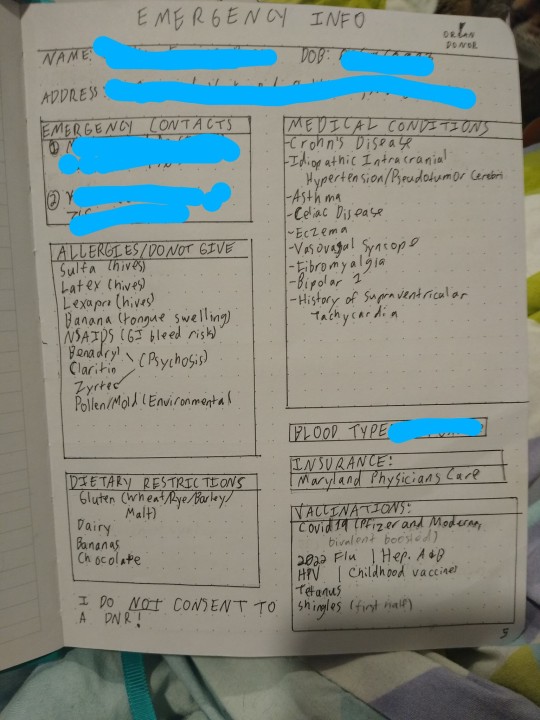 EMERGENCY INFO
ORGAN
DONOR
NAME:
DOB:
ADDRESS:
EMERGENCY CONTACTS
①
②
ALLERGIES/DO NOT GIVE
Sulfa (hives)
Latex (hives)
Lexapro (hives)
Banana (tongue swelling)
NSAIDS (GI bleed risk)
Benadryl
Claritin (Psychosis)
Zyrtec
Pollen/Mold (Environmental
DIETARY RESTRICTIONS
Gluten (Wheat/Rye/Barley/
Malt)
Dairy
Bananas
Chocolate
I DO NOT CONSENT TO
A DNR!
MEDICAL CONDITIONS
-Crohn's Disease
-Idiopathic Intracranial
Hypertension/Pseudotumor Cerebri
-Asthma
-Celiac Disease
-Eczema
-Vasovagal Syncope
-Fibromyalgia
-Bipolar 1
-History of Supraventricular
Tachycardia
BLOOD TYPE:
INSURANCE:
Maryland Physicians Care
VACCINATIONS:
Covid 19 (Pfizer and Moderna,
bivalent boosted)
2022 Flu | Hep. A&B
HPV | Childhood vaccines
Tetanus
Shingles (first half)